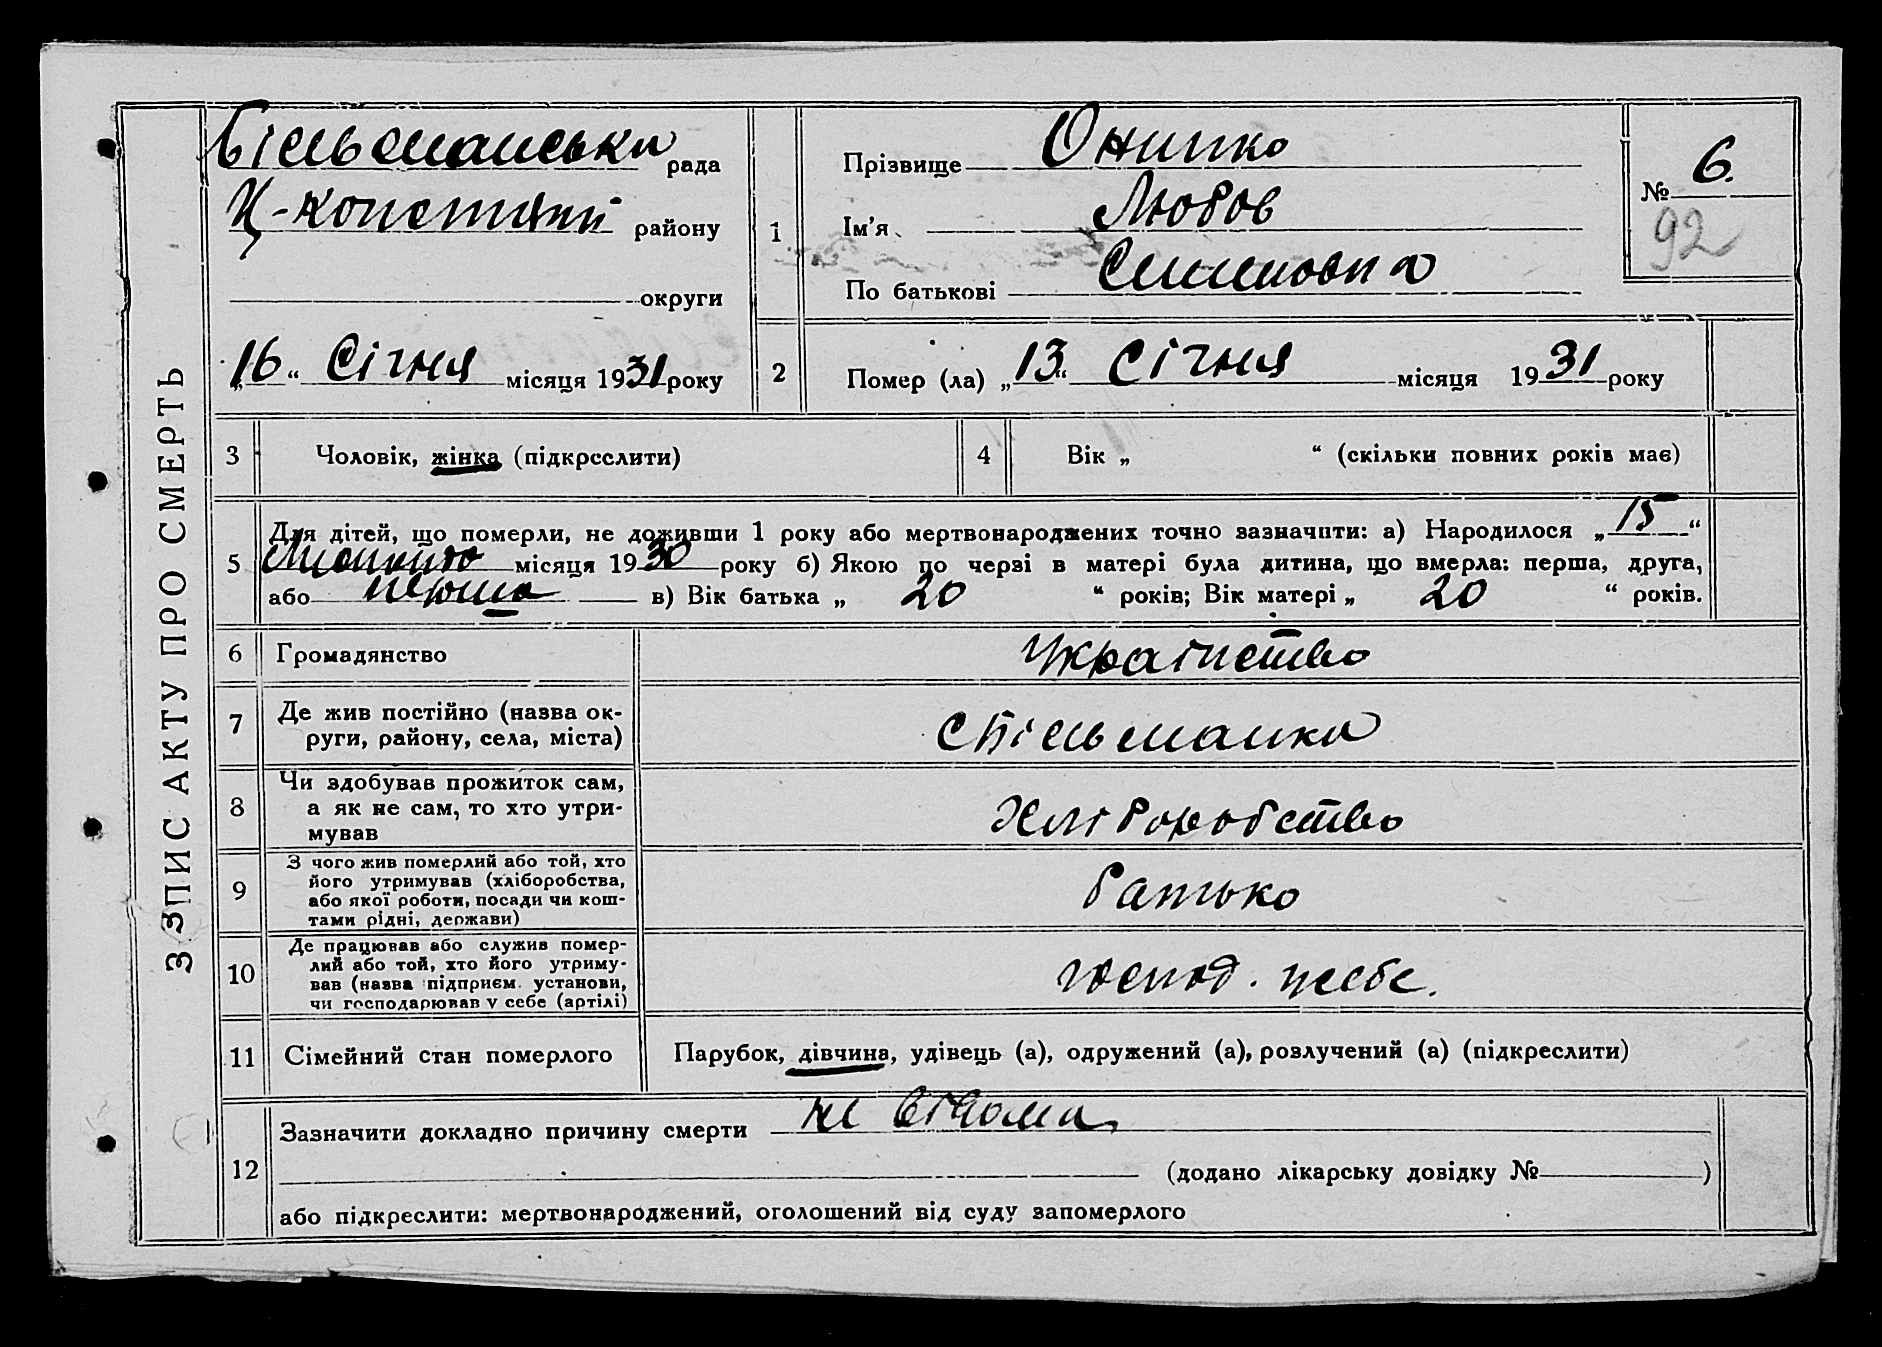 З ЗПИС АКТУ ПРО СМЕРТЬ
Більманська рада
Ц-Констян район
району
округи
„16“ Січня місяця 1931 року
1
Прізвище Онипко
Ім'я Любов
По батькові
№ 6.
92
2
Помер (ла) „13“ Січня місяця 1931 року
3
Чоловік, жінка (підкреслити)
4
Вік „ “ (скільки повних років має)
5
Для дітей, що померли, не доживши 1 року або мертвонароджених точно зазначити: а) Народилося „15“
місяця 1930 року б) Якою по черзі в матері була дитина, що вмерла: перша, друга,
або перша в) Вік батька „ 20 “ років; Вік матері „ 20 “ років.
6
Громадянство
Українство
7
Де жив постійно (назва ок-
руги, району, села, міста)
с Більманка
8
Чи здобував прожиток сам,
а як не сам, то хто утри-
мував
Хліборобство
9
З чого жив померлий або той, хто
його утримував (хліборобства,
або якої роботи, посади чи кош-
тами рідні, держави)
батько
10
Де працював або служив помер-
лий або той, хто його утриму-
вав (назва підприєм. установи,
чи господарював у себе (артілі)
господ. у себе.
11
Сімейний стан померлого
Парубок, дівчина, удівець (а), одружений (а), розлучений (а) (підкреслити)
12
Зазначити докладно причину смерти не відома
(додано лікарську довідку № )
або підкреслити: мертвонароджений, оголошений від суду запомерлого